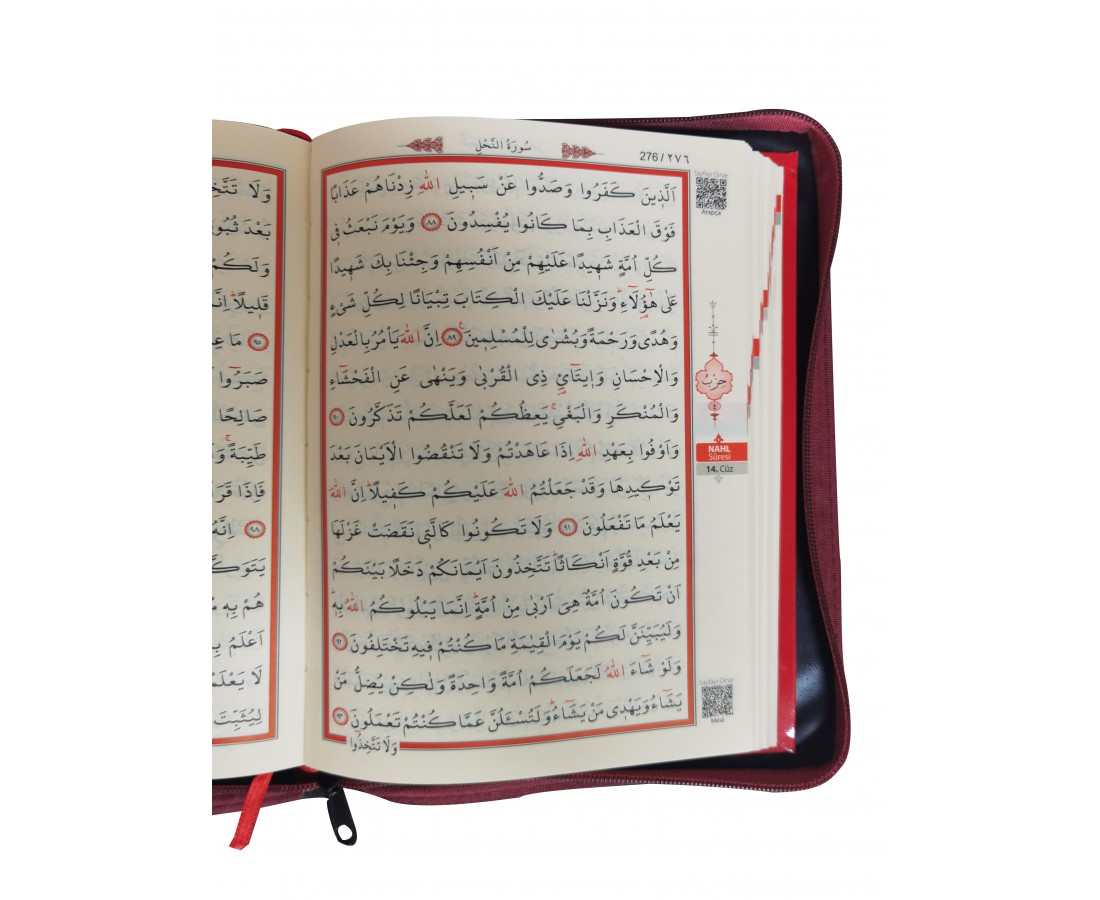 سُورَةُ النَّحْلِ
276 / ٢٧٦
اَلَّذ۪ينَ كَفَرُوا وَصَدُّوا عَنْ سَب۪يلِ اللّٰهِ زِدْنَاهُمْ عَذَابًا
فَوْقَ الْعَذَابِ بِمَا كَانُوا يُفْسِدُونَ ٨٨ وَيَوْمَ نَبْعَثُ ف۪ي
كُلِّ اُمَّةٍ شَه۪يدًا عَلَيْهِمْ مِنْ اَنْفُسِهِمْ وَجِئْنَا بِكَ شَه۪يدًا
عَلٰى هٰٓؤُ۬لَٓاءِۜ وَنَزَّلْنَا عَلَيْكَ الْكِتَابَ تِبْيَانًا لِكُلِّ شَيْءٍ
وَهُدًى وَرَحْمَةً وَبُشْرٰى لِلْمُسْلِم۪ينَ۟ ٨٩ اِنَّ اللّٰهَ يَأْمُرُ بِالْعَدْلِ
وَالْاِحْسَانِ وَا۪يتَٓائِ ذِي الْقُرْبٰى وَيَنْهٰى عَنِ الْفَحْشَٓاءِ
وَالْمُنْكَرِ وَالْبَغْيِۚ يَعِظُكُمْ لَعَلَّكُمْ تَذَكَّرُونَ ٩٠
وَاَوْفُوا بِعَهْدِ اللّٰهِ اِذَا عَاهَدْتُمْ وَلَا تَنْقُضُوا الْاَيْمَانَ بَعْدَ
تَوْك۪يدِهَا وَقَدْ جَعَلْتُمُ اللّٰهَ عَلَيْكُمْ كَف۪يلًاۜ اِنَّ اللّٰهَ
يَعْلَمُ مَا تَفْعَلُونَ ٩١ وَلَا تَكُونُوا كَالَّت۪ي نَقَضَتْ غَزْلَهَا
مِنْ بَعْدِ قُوَّةٍ اَنْكَاثًاۜ تَتَّخِذُونَ اَيْمَانَكُمْ دَخَلًا بَيْنَكُمْ
اَنْ تَكُونَ اُمَّةٌ هِيَ اَرْبٰى مِنْ اُمَّةٍۜ اِنَّمَا يَبْلُوكُمُ اللّٰهُ بِه۪ۜ
وَلَيُبَيِّنَنَّ لَكُمْ يَوْمَ الْقِيٰمَةِ مَا كُنْتُمْ ف۪يهِ تَخْتَلِفُونَ ٩٢
وَلَوْ شَٓاءَ اللّٰهُ لَجَعَلَكُمْ اُمَّةً وَاحِدَةً وَلٰكِنْ يُضِلُّ مَنْ
يَشَٓاءُ وَيَهْد۪ي مَنْ يَشَٓاءُۜ وَلَتُسْـَٔلُنَّ عَمَّا كُنْتُمْ تَعْمَلُونَ ٩٣
وَلَا تَتَّخِذُٓوا
Sayfayı Dinle
Arapça
حِزْبْ
٤
NAHL
Sûresi
14. Cüz
Sayfayı Dinle
Meal
بَعْدَ
وَلَكُمْ
قَل۪يلًاۜ
٩٥
صَبَرُٓوا
صَالِحًا
طَيِّبَةًۚ
فَاِذَا
٩٨
هُمْ بِه۪
اَعْلَمُ